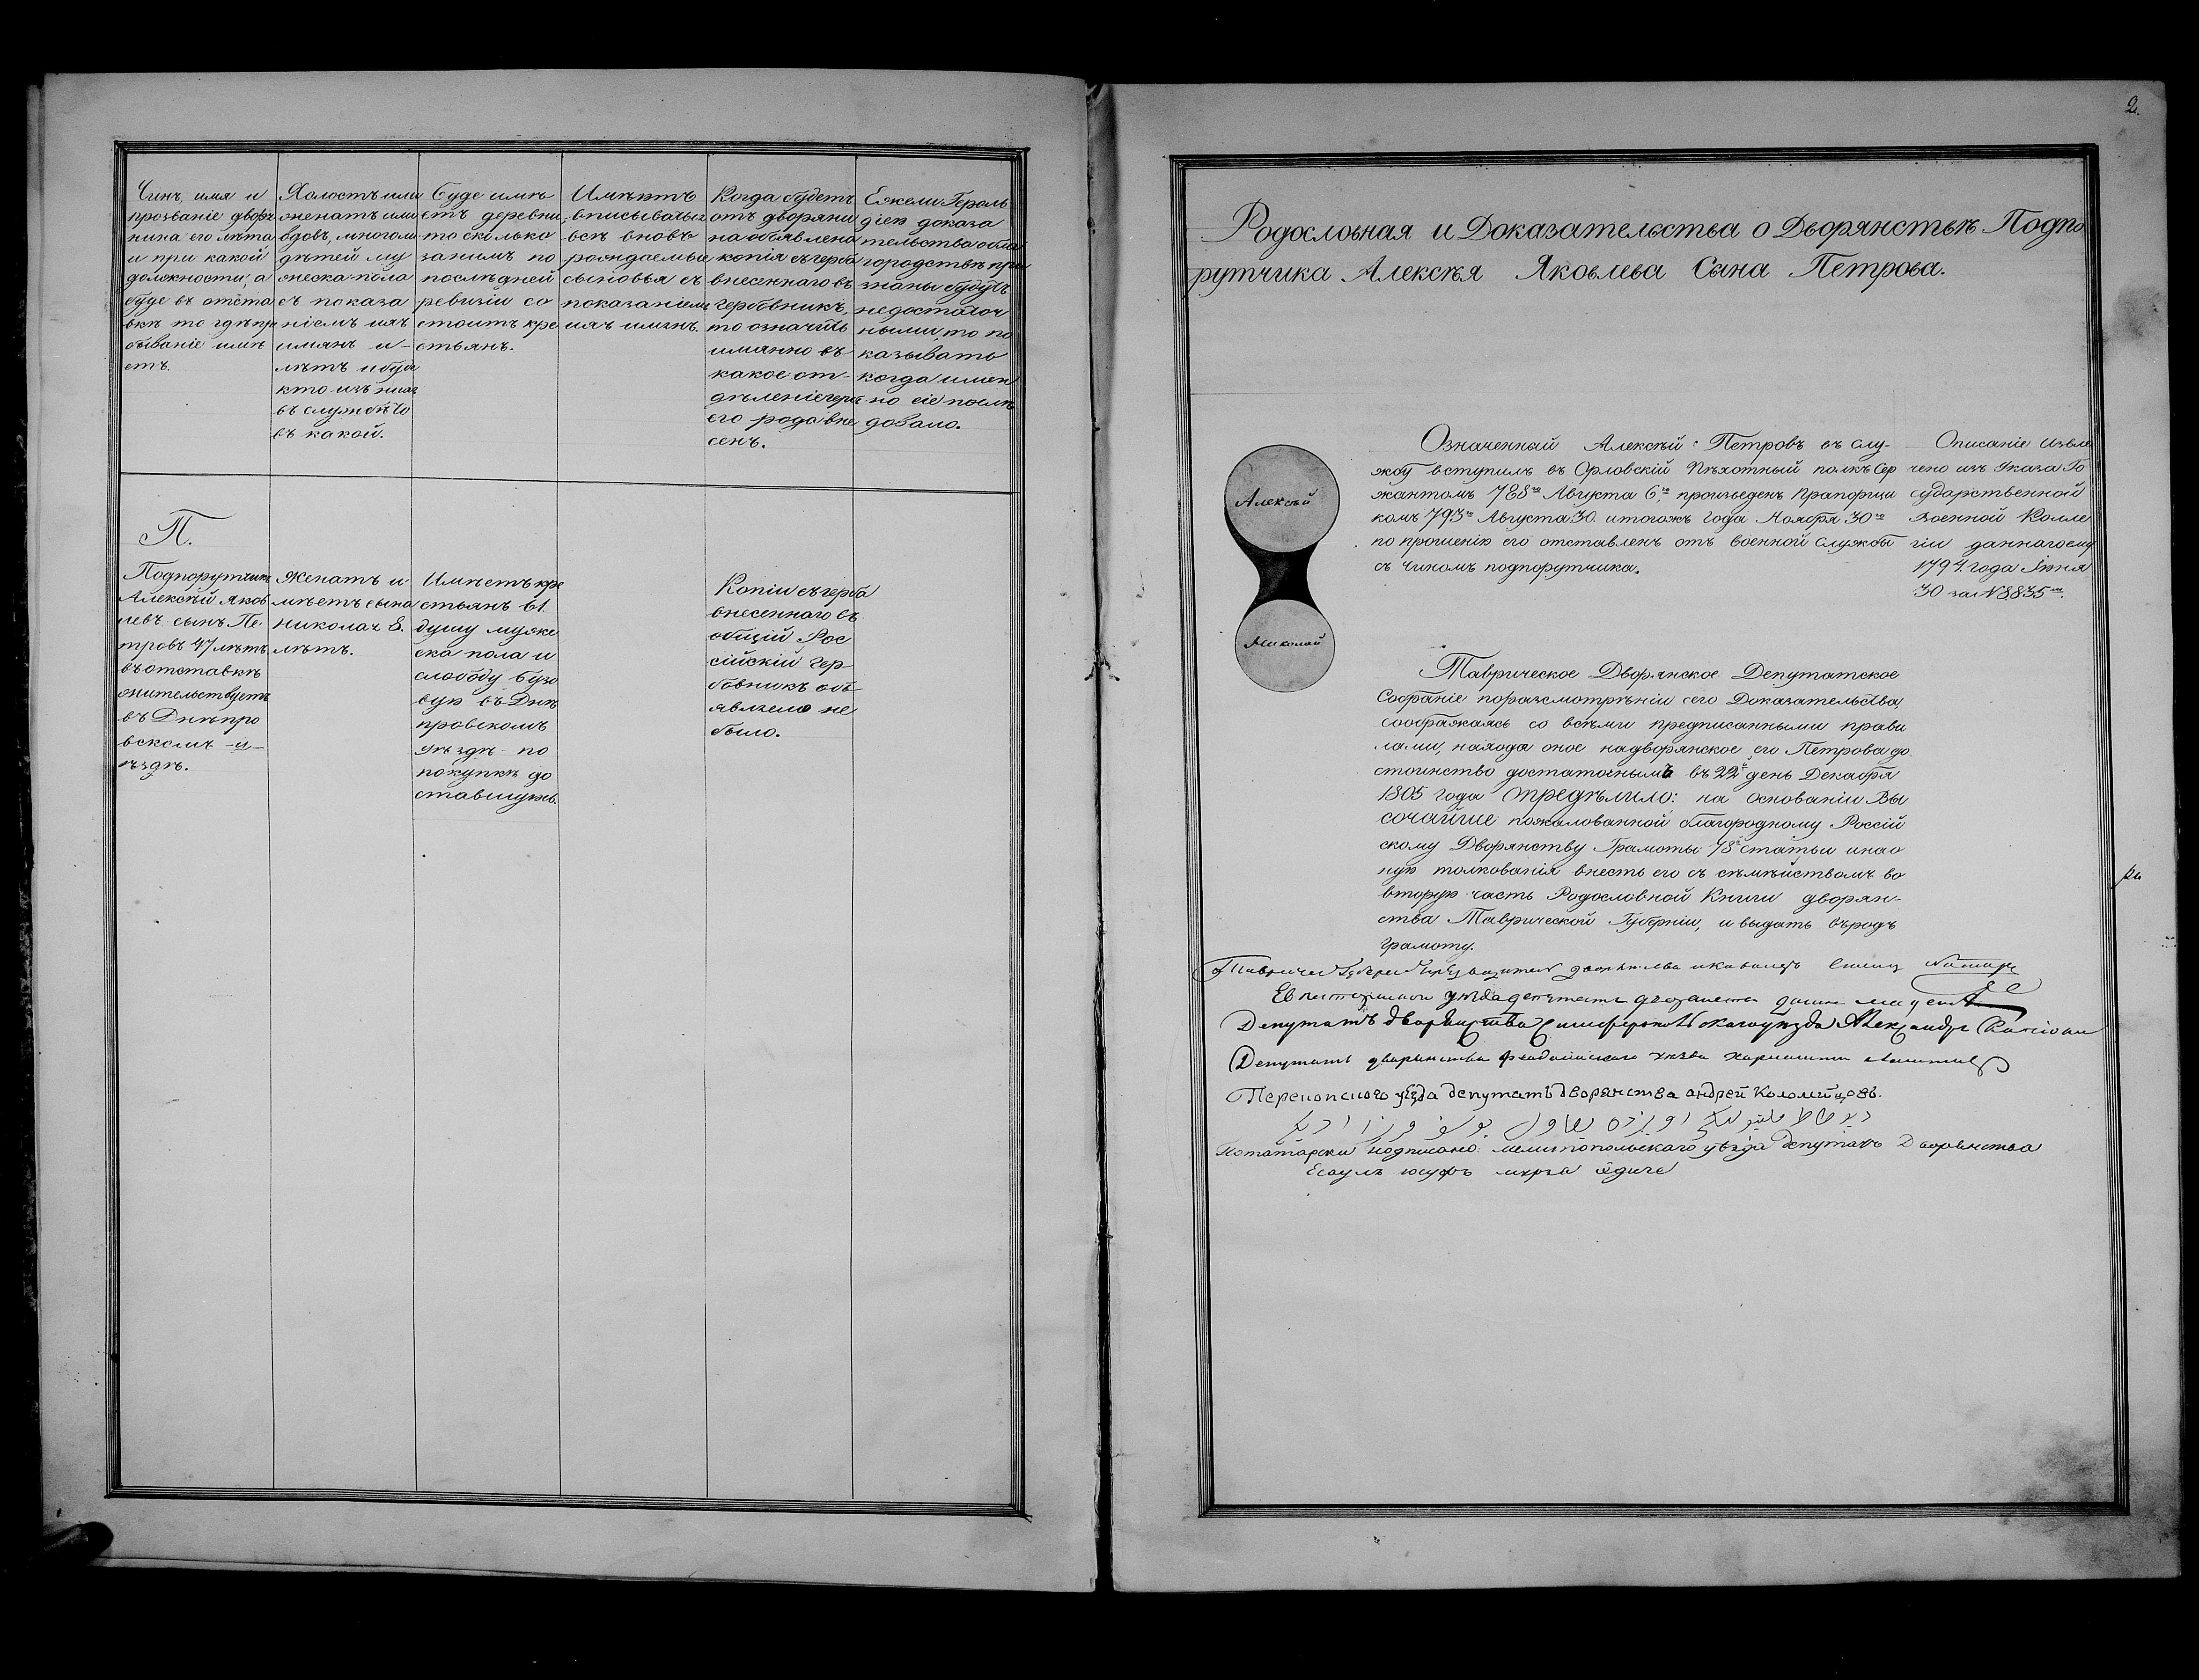 Чинъ, имя и
прозваніе дворя
нина его лѣта
и при какой
должности, а
буде въ отста
вкѣ то гдѣ пре
бываніе имѣ
етъ.
Холостъ или
женатъ или
вдовъ, много ли
дѣтей му
жеска пола
съ показа
ніемъ ихъ
имянъ и-
лѣтъ и буде
кто изъ нихъ
въ службѣ то
въ какой.
Буде имѣ
етъ деревни
то сколько
занимъ по
послѣдней
ревизіи со
стоитъ кре
стьянъ.
Имѣютъ
вписыватьс
всѣ вновь
рождаемые
сыновья съ
показаніемъ
ихъ имянъ.
Когда будетъ
отъ дворяни
на объявлена
копія съ герба
внесеннаго въ
гербовникъ,
то означить
имянно въ
какое от-
дѣленіе гербъ
его рода вне
сенъ.
Ежели Героль
діею доказа
тельства о бла
городствѣ при
знаны будутъ
недостаточ
ными, то по
казывать
когда имен
но сіе послѣ
довало.
П.
Подпорутчикъ
Алексѣй Яков
левъ сынъ Пе-
тровъ 47 лѣтъ
въ отставкѣ
жительствуетъ
въ Днѣпро
вскомъ -у-
ѣздѣ.
Женатъ и
мѣетъ сына
Николая 8.
лѣтъ.
Имѣетъ кре
стьянъ 61
душу муже
ска пола и
слободу Бузо
вую въ Днѣ
провскомъ
уѣздѣ по
покупкѣ до
ставшуюсь.
Копіи съ герба
внесеннаго въ
общій Рос
сійскій гер-
бовникъ объ-
явлено не
было.
2.
Родословная и Доказательства о Дворянствѣ Подпо
рутчика Алексѣя Яковлева Сына Петрова.
Алексѣй
Николай
Означенный Алексѣй Петровъ въ слу-
жбу вступилъ въ Орловскій Пѣхотный полкъ Сер
жантомъ 788го Августа 6го, произведенъ Прапорщи
комъ 793го Августа 30. итогожъ года Ноября 30го
по прошенію его отставленъ отъ военной службы
съ чиномъ подпорутчика.
Описаніе извле
чено изъ Указа Го
сударственной
Военной Колле
гіи даннаго ему
1794. года Іюня
30 за №8835мъ.
Таврическое Дворянское Депутатское
Собраніе поразсмотрѣніи сего Доказательства,
соображаясь со всѣми предписанными прави
лами, находя оное надворянское его Петрова до
стоинство достаточнымъ въ 22й день Декабря
1805 года Опредѣлило: на основаніи Вы
сочайше пожалованной благородному Россій
скому Дворянству Грамоты 78й статьи инао
ную толкованія внесть его съ сѣмѣйствомъ во
вторую часть Родословной Книги дворян-
ства Таврической Губерніи, и выдать въродъ
Грамоту.
дворянства
уѣзда депутатъ дворянства
Депутатъ дворянства Симферопольскаго уѣзда Александръ
Депутатъ дворянства Феодосійскаго уѣзда
Перекопского уѣзда депутатъ дворянства андрей Коломийцовъ.
Потатарски подписано: мелитопольскаго уѣзда депутатъ Дворянства
Есаулъ юсуфъ мурза едиге